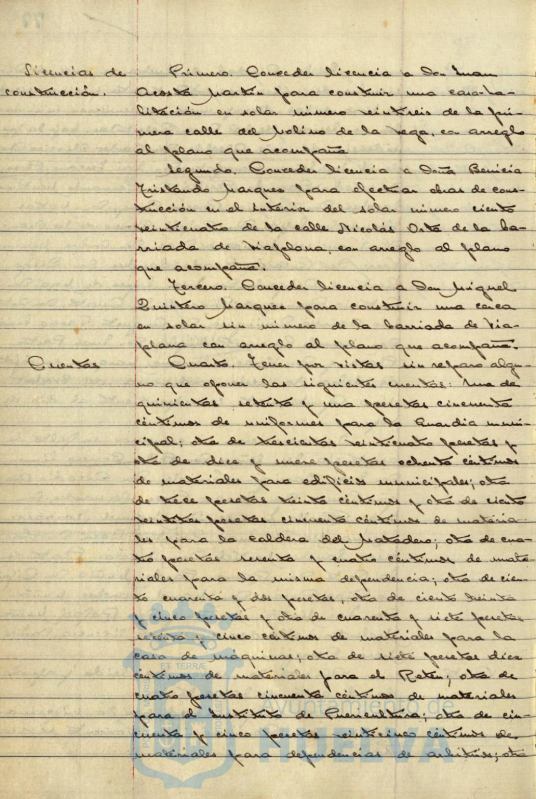 Licencias de
construcción.
Primero. Conceder licencia a Don Juan
Acosta Martín para construir una casa ha-
bitación en solar número veintiseis de la pri-
mera calle del Molino de la Vega, con arreglo
al plano que acompaña.
Segundo. Conceder licencia a Doña Benicia
Tristando Marquez para efectuar obras de cons-
trucción en el interior del solar número ciento
veinticuatro de la calle Nicolás Orta de la ba-
rriada de Viaplana, con arreglo al plano
que acompaña.
Tercero. Conceder licencia a Don Miguel
Quintero Marquez para construir una casa
en solar sin número de la barriada de Via-
plana con arreglo al plano que acompaña.
Cuentas
Cuarto. Tener por vistas sin reparo algu-
no que oponer las siguientes cuentas: Una de
quinientas setenta y una pesetas cincuenta
céntimos de uniformes para la Guardia muni-
cipal; otra de trescientas veinticuatro pesetas y
otra de diez y nueve pesetas ochenta céntimos
de materiales para edificios municipales; otra
de trece pesetas treinta céntimos y otra de ciento
veintitrés pesetas cincuenta céntimos de materia-
les para la caldera del Matadero; otra de cua-
tro pesetas sesenta y cuatro céntimos de mate-
riales para la misma dependencia; otra de cien-
to cuarenta y dos pesetas, otra de ciento treinta
y cinco pesetas y otra de cuarenta y siete pesetas
setenta y cinco céntimos de materiales para la
casa de máquinas; otra de siete pesetas diez
céntimos de materiales para el Retén; otra de
cuatro pesetas cincuenta céntimos de materiales
para el Instituto de Puericultura; otra de cin-
cuenta y cinco pesetas veinticinco céntimos de
materiales para dependencias de arbitrios; otra
ET TERRÆ
ayuntamiento de
HUELVA